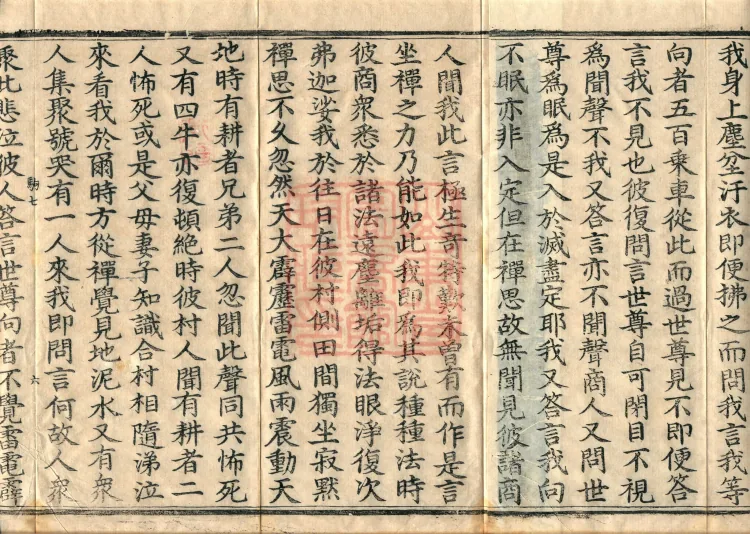 我身上塵坌汙衣即便拂之而問我言我等
向者五百乘車從此而過世尊見不即便答
言我不見也彼復問言世尊自可閉目不視
爲聞聲不我又答言亦不聞聲商人又問世
尊爲眠爲是入於滅盡定耶我又答言我向
不眠亦非入定但在禪思故無聞見彼諸商
人聞我此言極生奇特歎未曾有而作是言
坐禪之力乃能如此我即爲其說種種法時
彼商衆悉於諸法遠塵離垢得法眼淨復次
弗迦娑我於往日在彼村側田間獨坐寂默
禪思不久忽然天大霹靂雷電風雨震動天
地時有耕者兄弟二人忽聞此聲同共怖死
又有四牛亦復頓絕時彼村人聞有耕者二
人怖死或是父母妻子知識合村相隨涕泣
來看我於爾時方從禪覺見地泥水又有衆
人集聚號哭有一人來我即問言何故人衆
駒七 六
聚此悲泣彼人答言世尊向者不覺雷電霹